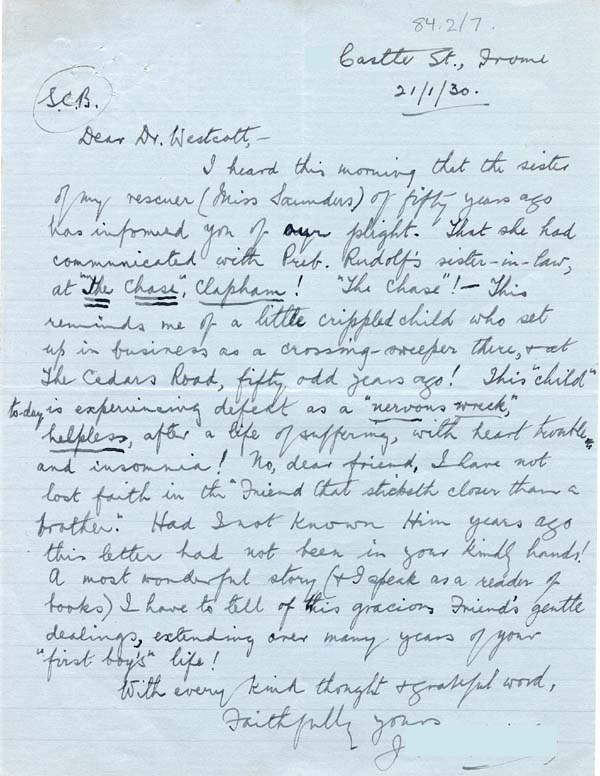 84.2/7.
Castle St., Frome
21/1/30.
S.C.B.
Dear Dr. Westcott,-
I heard this morning that the sister
of my rescuer (Miss Saunders) of fifty years ago
has informed you of our plight. That she had
communicated with Preb. Rudolf's sister-in-law,
at "The Chase", Clapham! "The Chase"!- This
reminds me of a little crippled child who set
up in business as a crossing-sweeper there, & at
The Cedars Road, fifty odd years ago! This "child"
to-day is experiencing defeat as a "nervous wreck",
helpless, after a life of suffering, with heart trouble,
and insomnia! No, dear friend, I have not
lost faith in the "Friend that sticketh closer than a
brother". Had I not known Him years ago
this letter had not been in your kindly hands!
A most wonderful story (& I speak as a reader of
books) I have to tell of this gracious Friend's gentle
dealings, extending over many years of your
"first boy's" life!
With every kind thought & grateful word,
Faithfully yours
J